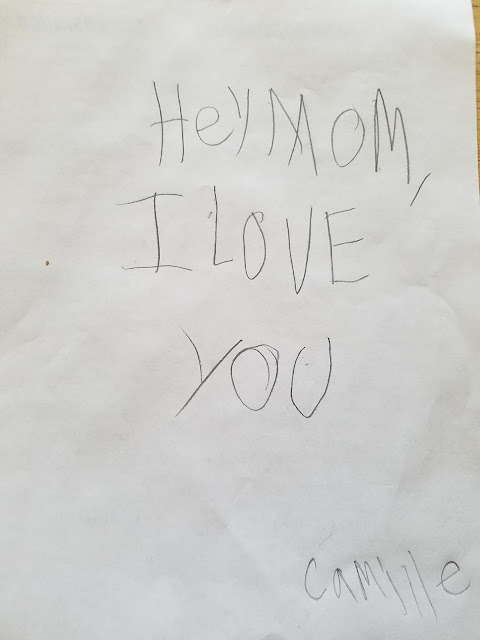 Hey MOM,
I LOVE
YOU
Camille